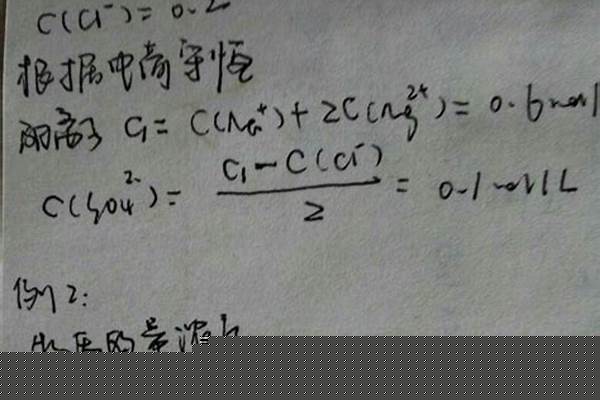 C(Cl⁻)= 0.2
根据电荷守恒
阳离子 C₁= C(Na⁺)+2C(Mg²⁺)= 0.6mol
C(SO4²⁻)= (C₁-C(Cl⁻))/2 = 0.1mol/L
例2:
的量浓